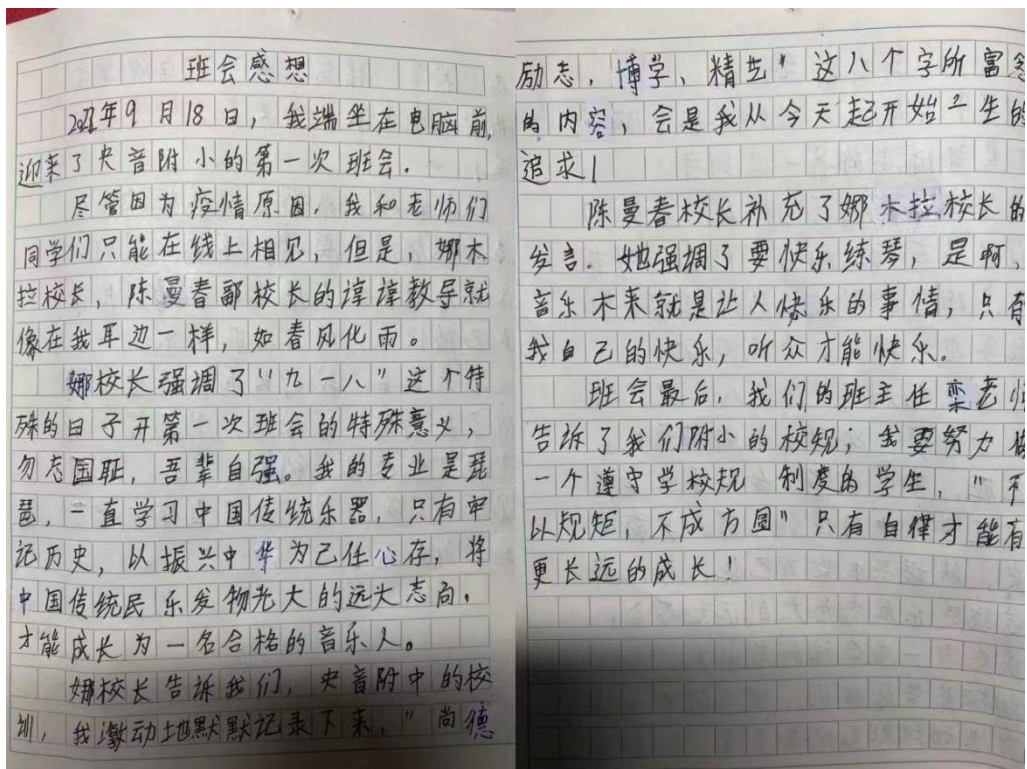 班会感想
202年9月18日，我端坐在电脑前，
迎来了央音附小的第一次班会.
尽管因为疫情原因，我和老师们
同学们只能在线上相见，但是，娜木
拉校长，陈曼春副校长的谆谆教导就
像在我耳边一样，如春风化雨。
娜校长强调了“九一八”这个特
殊的日子开第一次班会的特殊意义，
勿忘国耻，吾辈自强。我的专业是琵
琶，一直学习中国传统乐器，只有牢
记历史，以振兴中华为己任心存，将
中国传统民乐发物光大的远大志向，
才能成长为一名合格的音乐人。
娜校长告诉我们，央音附中的校
训，我激动地默默记录下来，“尚德
励志，博学、精艺”这八个字所富含
的内容，会是我从今天起开始2生的
追求！
陈曼春校长补充了娜木拉校长的
发言.她强调了要快乐练琴，是啊，
音乐本来就是让人快乐的事情，只有
我自己的快乐，听众才能快乐.
班会最后，我们的班主任栾老师
告诉了我们附小的校规；我要努力做
一个遵守学校规 制度的学生，“不
以规矩，不成方圆”只有自律才能有
更长远的成长！